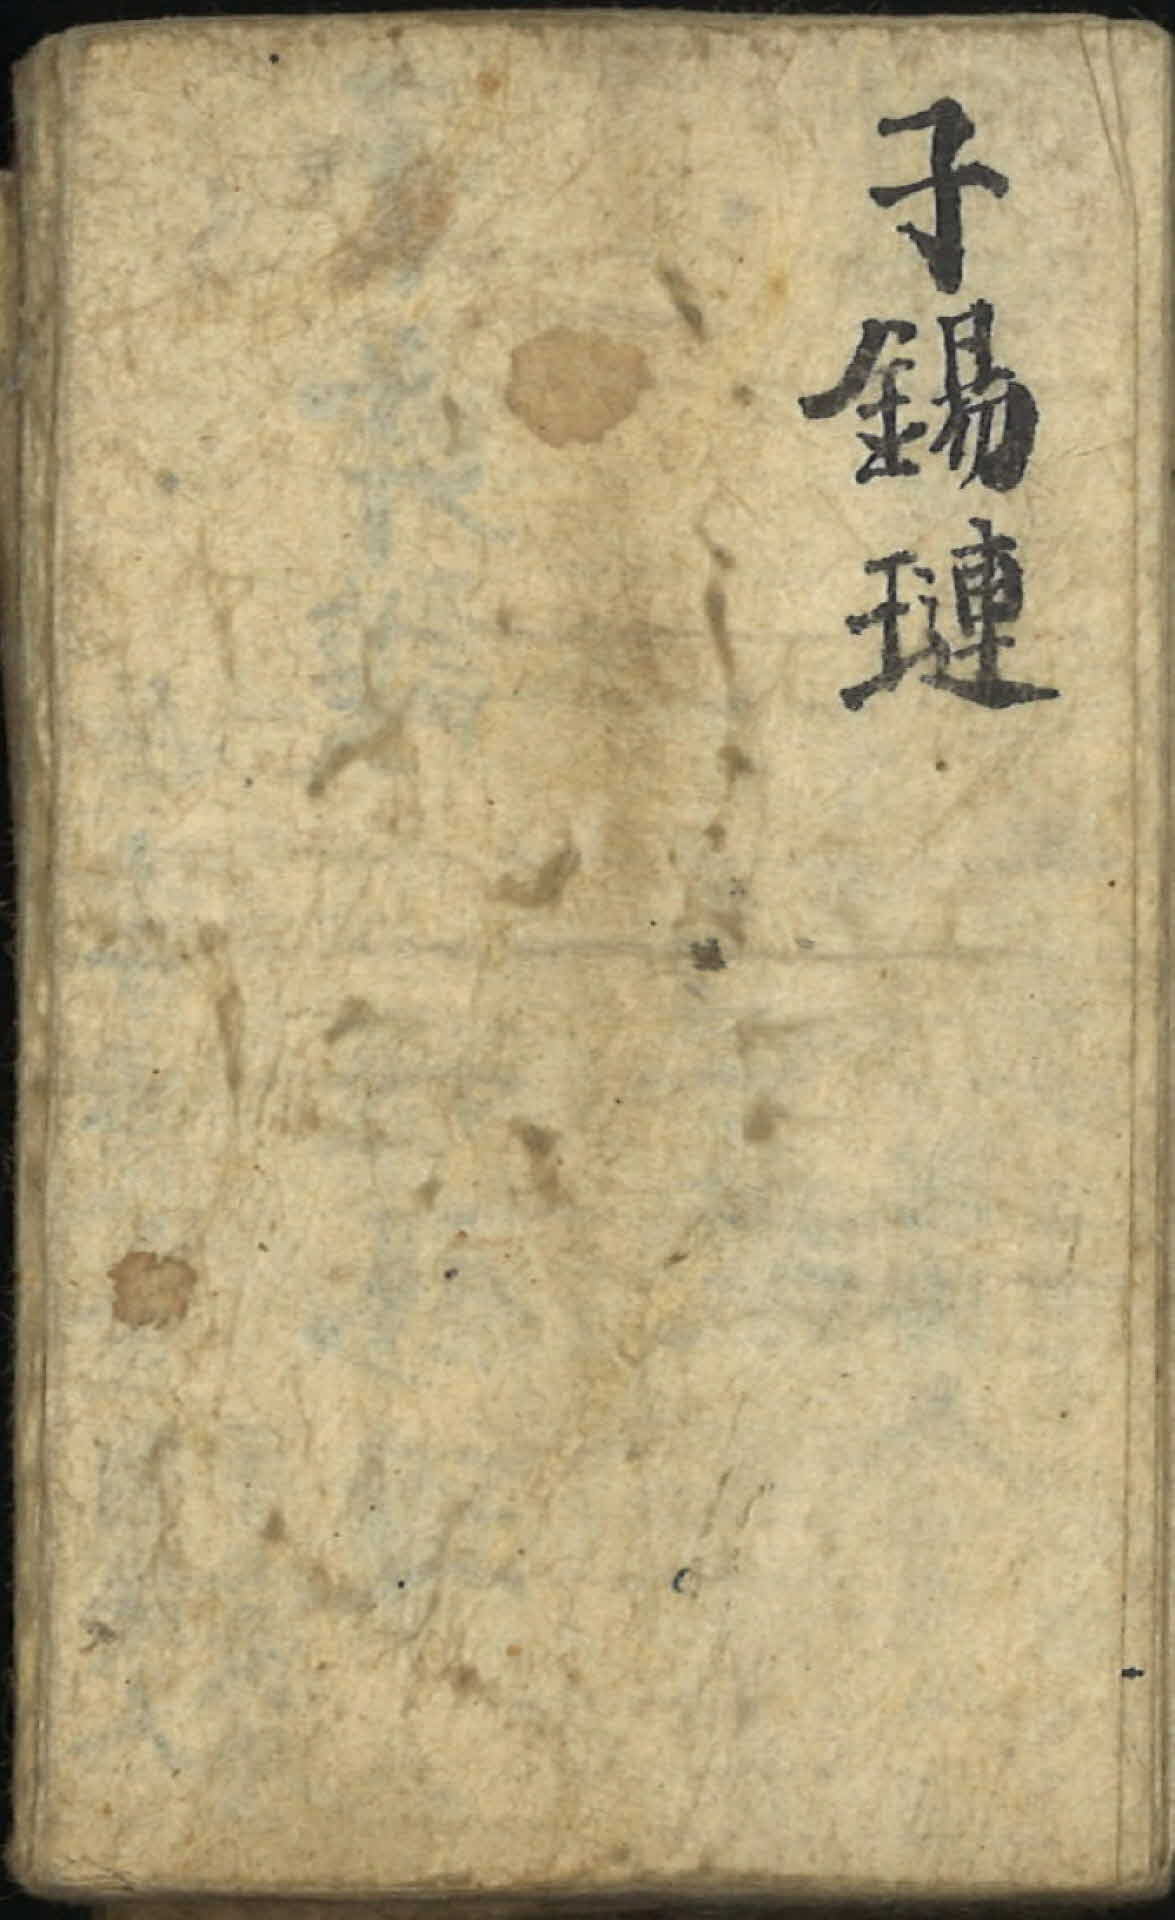 子錫璉